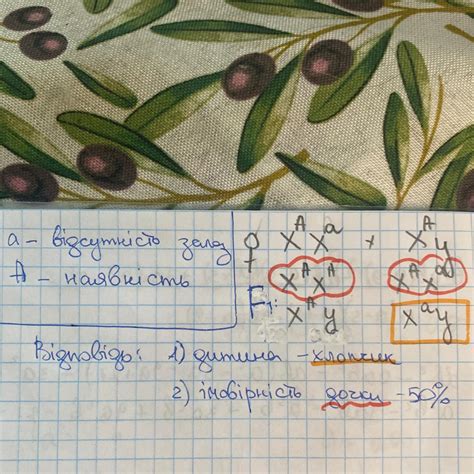 a - відсутність залоз
A - наявність
♀ XᴬXᵃ × XᴬY
F₁: XᴬXᴬ XᴬXᵃ
XᴬY XᵃY
Відповідь: 1) дитина - хлопчик
2) імовірність дочки - 50%